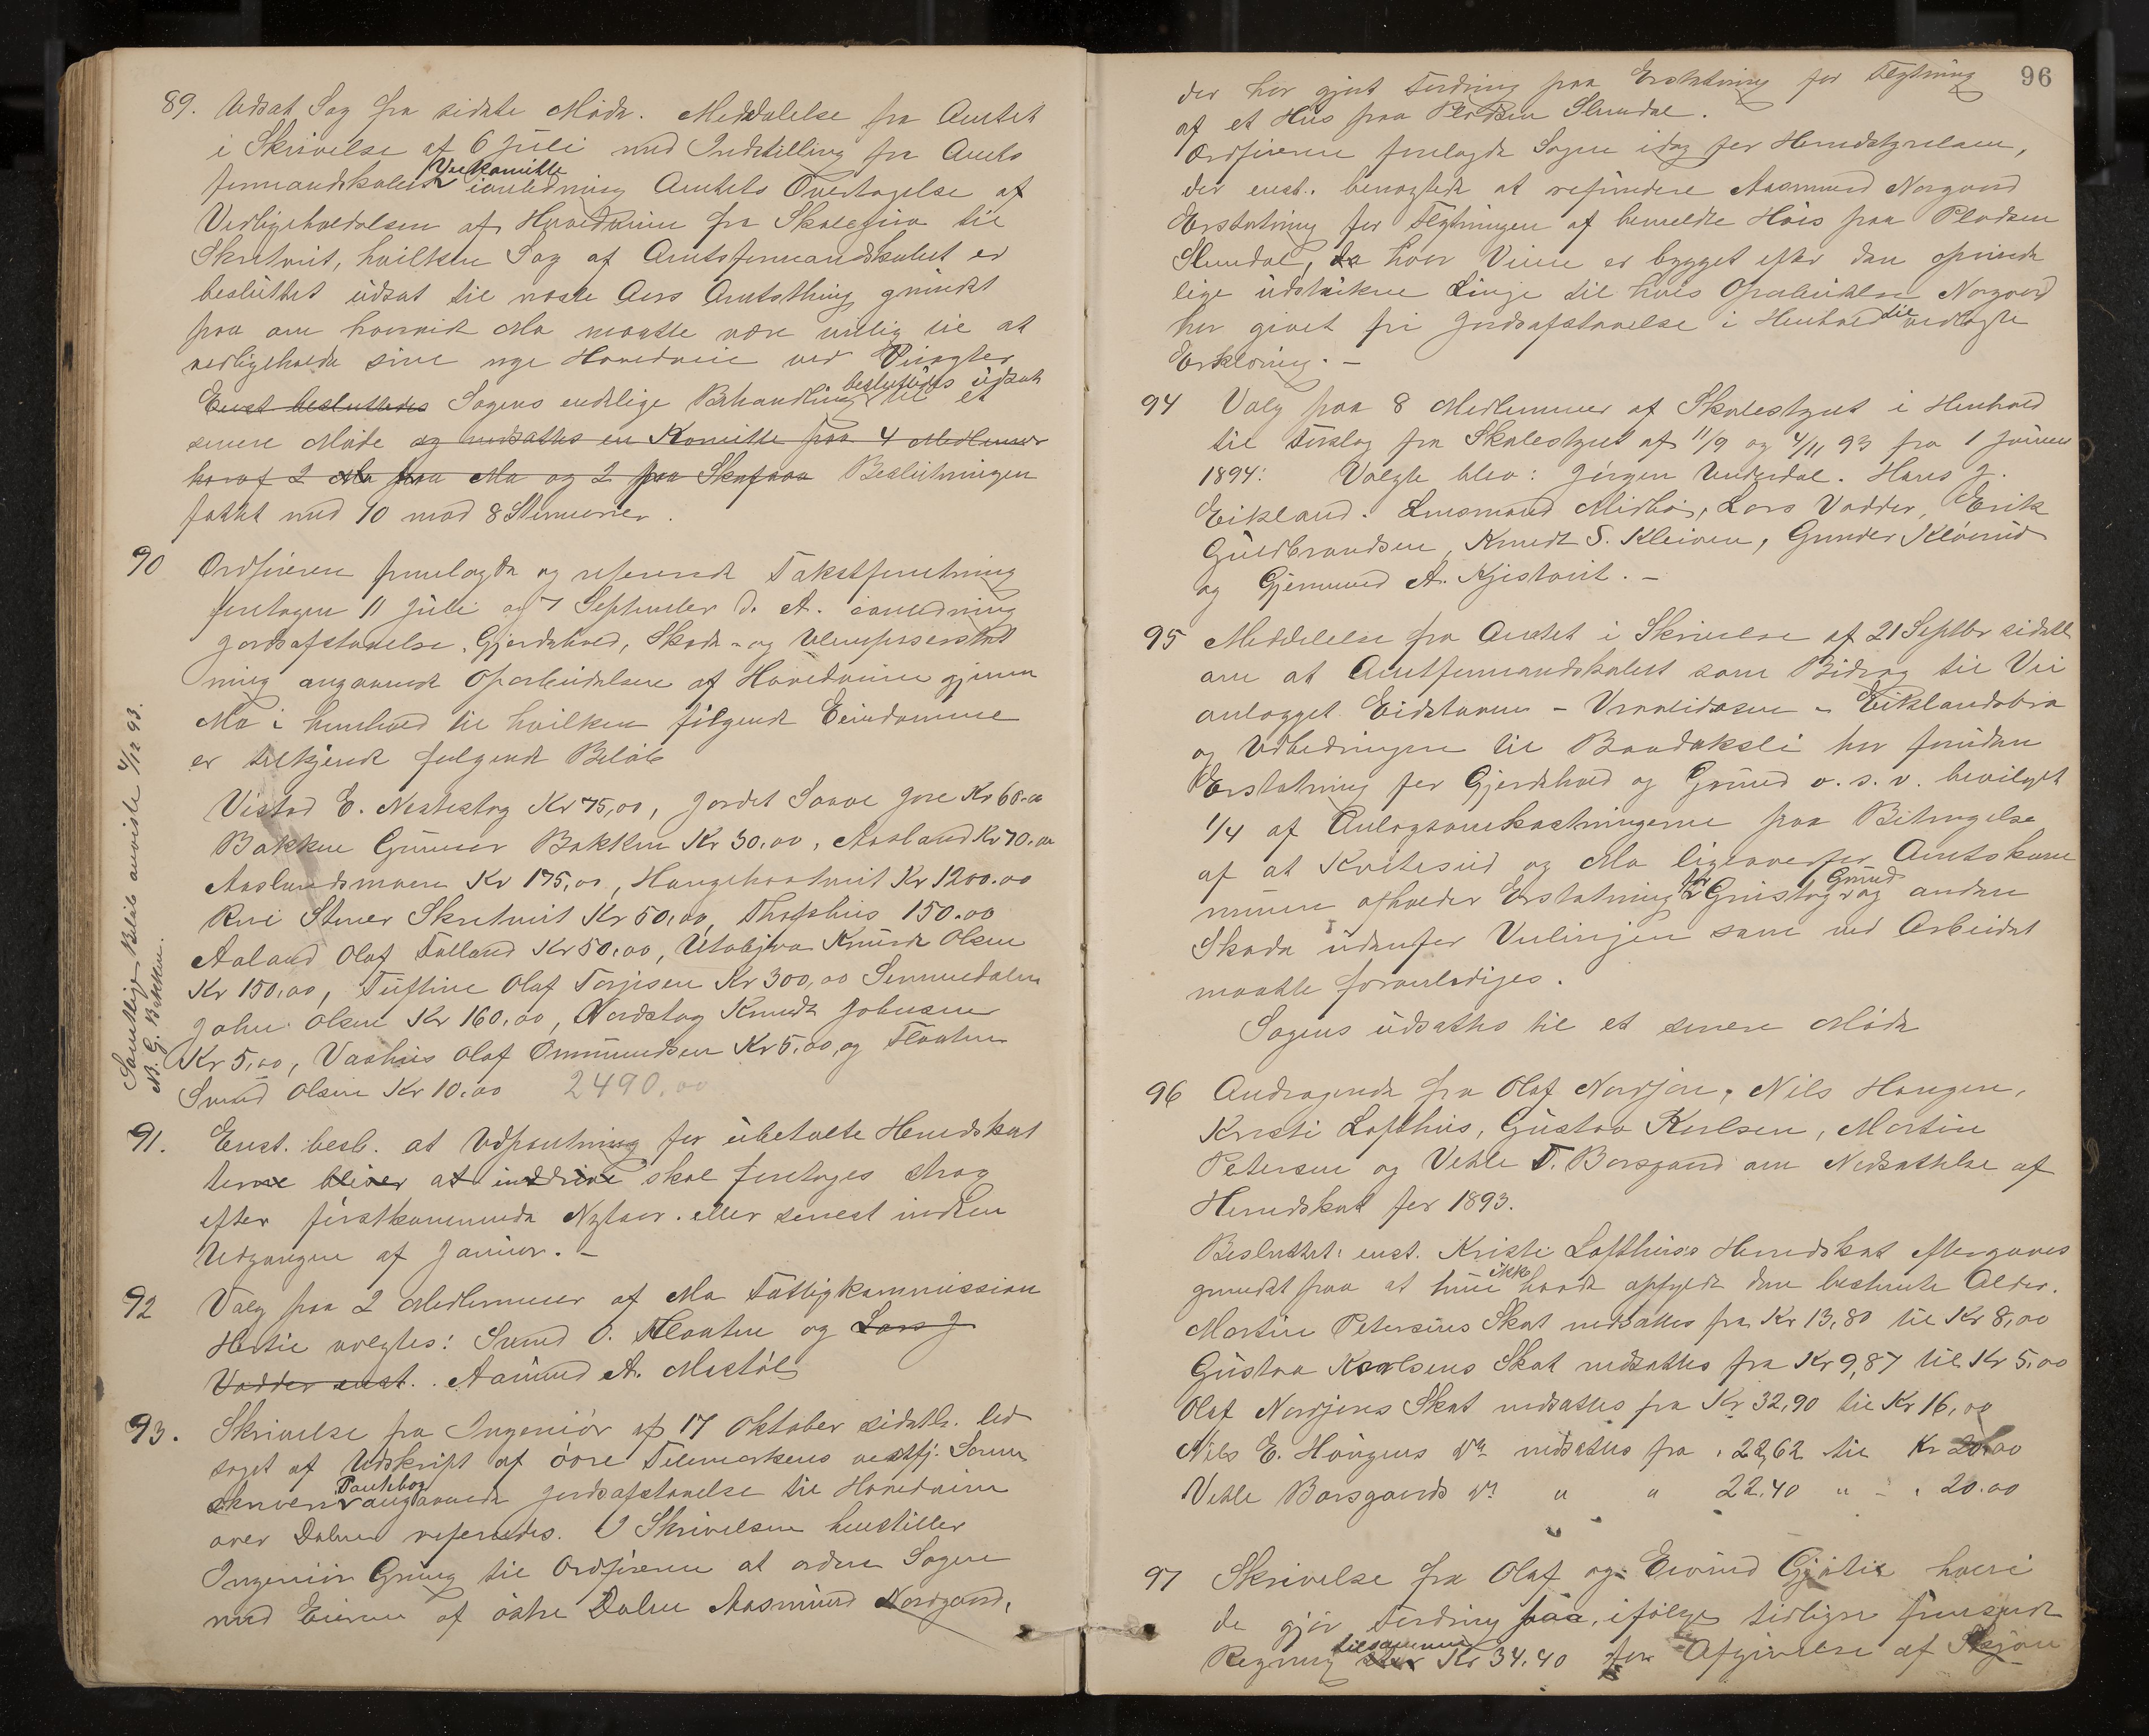 89. Udsat Sag fra sidste Møde. Meddelelse fra Amtet
i Skrivelse af 6 Juli med Indstilling fra Amts
formandskabets Veikomitte i anledning Amtets Overtagelse af
Vedligeholdelsen af Hovedveien fra til
Skretveit, hvilken Sag af Amtsformandskabet er
besluttet udsat til næste Aars Amtsthing grundet
paa om hvorvidt Mo maatte være villig til at
vedligeholde sine nye Hovedveie ved Veivogter
Enst besluttedes Sagens endelige Behandling besluttedes udsat til et
senere Møde og nedsattes en Komitte paa 4 Medlemmer
horaf 2 fra Mo og 2 fra Skafsaa Beslutningen
fattet med 10 mod 8 Stemmer.
90 Ordføreren fremlagde og refererede Takstforretning
foretagen 11 Juli og 7 September d. A. i anledning
Jordafstaaelse, Gjerdehold, Skade- og Ulempeserstat
ning angaaende Oparbeidelsen af Hovedveien gjennem
Mo i henhold til hvilken følgende Eiendomme
er tilkjendt følgende Beløb
Vistad E. Nestestog Kr 75,00, Jordet Saave Jore Kr 60.00
Bakken Gunner Bakken Kr 30.00, Aasland Kr 70.00
Aaslandsmoen Kr 175,00, Haugehaatveit Kr 1200.00
Rui Stener Skretveit Kr 50,00, 150.00
Aaland Olaf Talland Kr 50,00, Utabjaa Knud Olsen
Kr 150,00, Tuftine Olaf Torjesen Kr 300,00
John Olsen Kr 160,00, Nordstog Knudt Johnsen
Kr 5,00, Vashus Olaf Ommundsen Kr 5,00, og Flaaten
Svend Olsen Kr 10.00 2490.00
Samtlige Beløb anviste 4/12 93.
N. G. Bakken.
91. Enst. besl. at Udpantning for ubetalte Herredskat
terne bliver at inddrive skal foretages strax
efter førstkommende Nytaar eller senest inden
Udgangen af Januar. –
92 Valg paa 2 Medlemmer af Mo Fattigkommission
Hertil valgtes: Svend O. Flaaten og Lars J
Vadder enst. Aamund A. Mostøl
93. Skrivelse fra Ingeniør af 17 Oktober sidstl. led
saget af Udskrift af øvre Telemarkens vestfj. Soren
skriveri Pantebog angaaende Jordafstaaelse til Hovedveien
over Dalen refereredes. I Skrivelsen henstiller
Ingeniør Gring til Ordføreren at ordne Sagen
med Eieren af østre Dalen Aasmund Nordgaard,
96
der har gjort Fordring paa Erstatning for Flytning
af et Hus paa Pladsen Slemdal.
Ordføreren forelagde Sagen idag for Herredstyrelsen,
der enst. benegtede at refundere Aasmund Norgaard
Erstatning for Flytningen af bemeldte Hus paa Pladsen
Slemdal, da hvor Veien er bygget efter den oprinde
lige udstukne Linje til hvis Oparbeidelse Norgaard
har givet fri Jordafstaaelse i Henhold til vedlagte
Erklæring. –
94 Valg paa 8 Medlemmer af Skolestyret i Henhold
til Forslag fra Skolestyret af 11/9 og 4/11 93 fra 1 Januar
1894: Valgte blev: Jørgen Underdal. Hans J.
Eikland. Midbø, Lars Vadder, Erik
Guldbrandsen, Knudt S. Kleiven, Gunder Kløverud
og Gjermund A. Kjistveit. –
95 Meddelelse fra Amtet i Skrivelse af 21 Septbr sidstl
om at Amtformandskabet som Bidrag til Vei
anlægget Eidstaven – Vraaliosen – Eiklandsbra
og Udbedringen til Bandaksli har foruden
Erstatning for Gjerdehold og Grund o. s. v. bevilget
1/4 af Anlægsomkostningerne paa Betingelse
af at Kviteseid og Mo ligeoverfor Amtskom
munen afholder Erstatning for Grustag Grund og anden
Skade udenfor Veilinjen som ved Arbeidet
maatte foranlediges.
Sagens udsattes til et senere Møde
96 Andragende fra Olaf Nordjore, Nils Haugen,
Kristi Lofthus, Gustav Karlsen, Martin
Petersen og Vetle T. Borsgaard om Nedsættelse af
Herredskat for 1893.
Besluttet: enst. Kristi Lofthus's Herredskat eftergaves
grundet paa at hun ikke havde opfyldt den bestemte Alder.
Martin Petersens Skat nedsattes fra Kr 13,80 til Kr 8,00
Gustav Karlsens Skat nedsattes fra Kr 9,87 til Kr 5,00
Olaf Nordjores Skat nedsattes fra Kr 32,90 til Kr 16,00
Nils E. Haugens do nedsattes fra " 22,62 til Kr 20.00
Vetle Borsgaards do " " 22.40 " – " 20.00
97 Skrivelse fra Olaf og Eivind Gjøtil hvori
de gjør Fordring paa, ifølge tidligere fremsendt
Regning tilsammen Kr 34.40 for Afgivelse af Skjøn